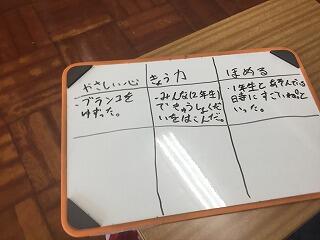 やさしい心
きょう力
ほめる
・ブランコを
ゆずった。
・みんな(2年生)
できゅうしょくだ
いをはこんだ。
・1年生とあそんでいる
時にすごいねって
いった。